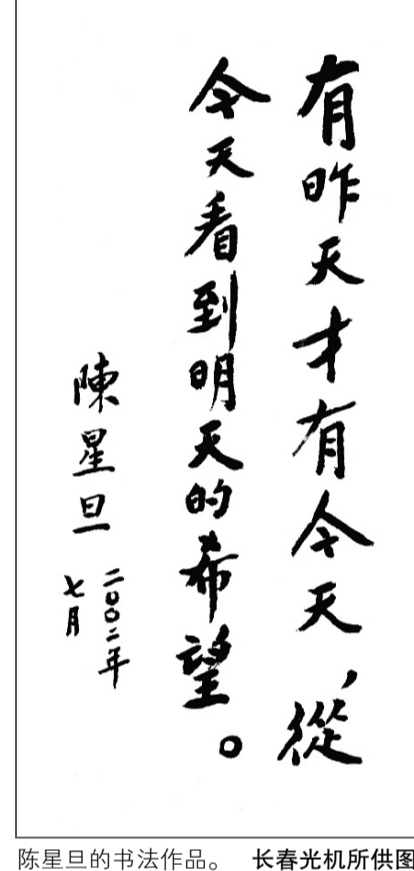 有昨天才有今天，從
今天看到明天的希望。
陳星旦
二〇〇二年
七月
陈星旦的书法作品。 长春光机所供图